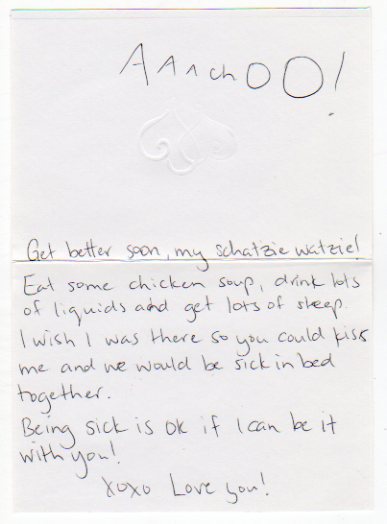 AAAchOO!
Get better soon, my schatzie watzie!
Eat some chicken soup, drink lots
of liquids and get lots of sleep.
I wish I was there so you could kiss
me and we would be sick in bed
together.
Being sick is ok if I can be it
with you!
xoxo Love you!